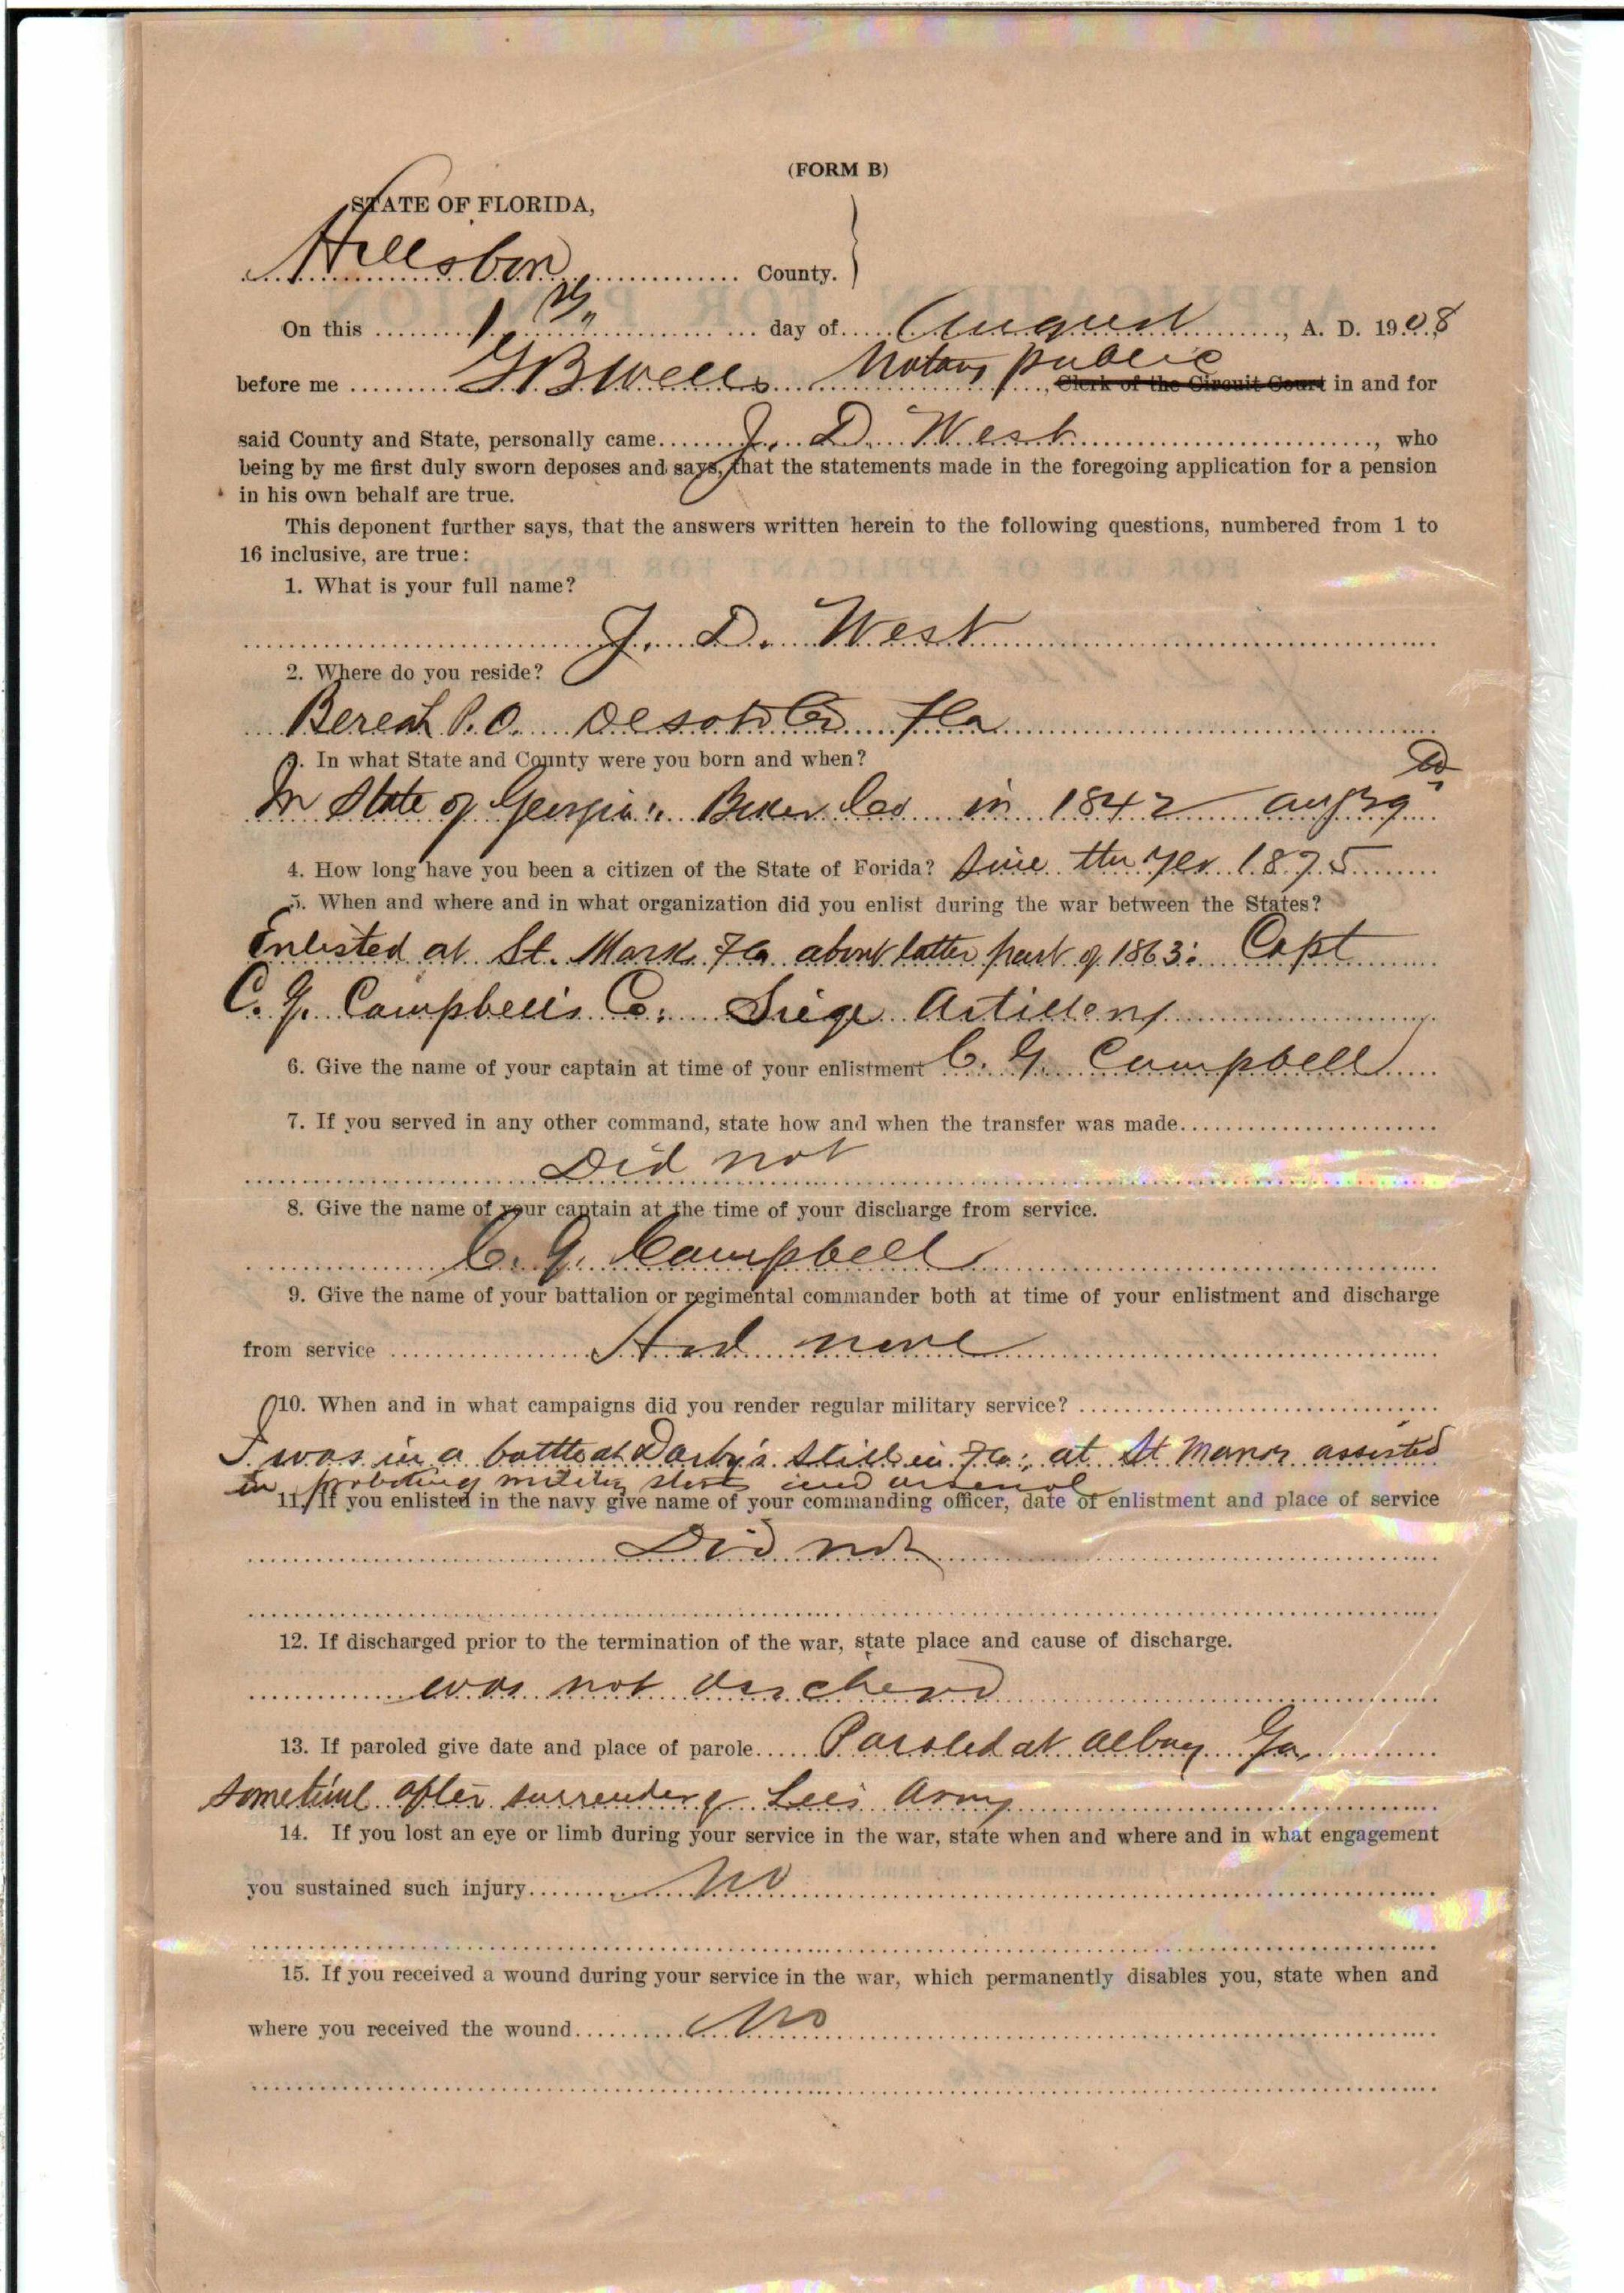 (FORM B)
STATE OF FLORIDA,
Hillsboro County.
On this 1st day of August, A. D. 1908
before me G B Wells Notary public, Clerk of the Circuit Court in and for
said County and State, personally came J. D. West, who
being by me first duly sworn deposes and says, that the statements made in the foregoing application for a pension
in his own behalf are true.
This deponent further says, that the answers written herein to the following questions, numbered from 1 to
16 inclusive, are true:
1. What is your full name?
J. D. West
2. Where do you reside?
Bereah P.O. Desoto Co Fla
3. In what State and County were you born and when?
In State of Georgia: Baker Co in 1842 Aug
4. How long have you been a citizen of the State of Forida? Since the yer 1875
5. When and where and in what organization did you enlist during the war between the States?
Enlisted at St. Mark Fla about latter part of 1863: Capt
C. G. Campbell's Co. Siege Artillery
6. Give the name of your captain at time of your enlistment C. G. Campbell
7. If you served in any other command, state how and when the transfer was made
Did not
8. Give the name of your captain at the time of your discharge from service.
C. G. Campbell
9. Give the name of your battalion or regimental commander both at time of your enlistment and discharge
from service Had none
10. When and in what campaigns did you render regular military service?
I was in a battle at Darby's Still in Fla; at St assisted
in military stores and arsenal
11. If you enlisted in the navy give name of your commanding officer, date of enlistment and place of service
Did not
12. If discharged prior to the termination of the war, state place and cause of discharge.
was not
13. If paroled give date and place of parole Paroled at Albany Ga
sometime after surrender of Lee's Army
14. If you lost an eye or limb during your service in the war, state when and where and in what engagement
you sustained such injury No
15. If you received a wound during your service in the war, which permanently disables you, state when and
where you received the wound No